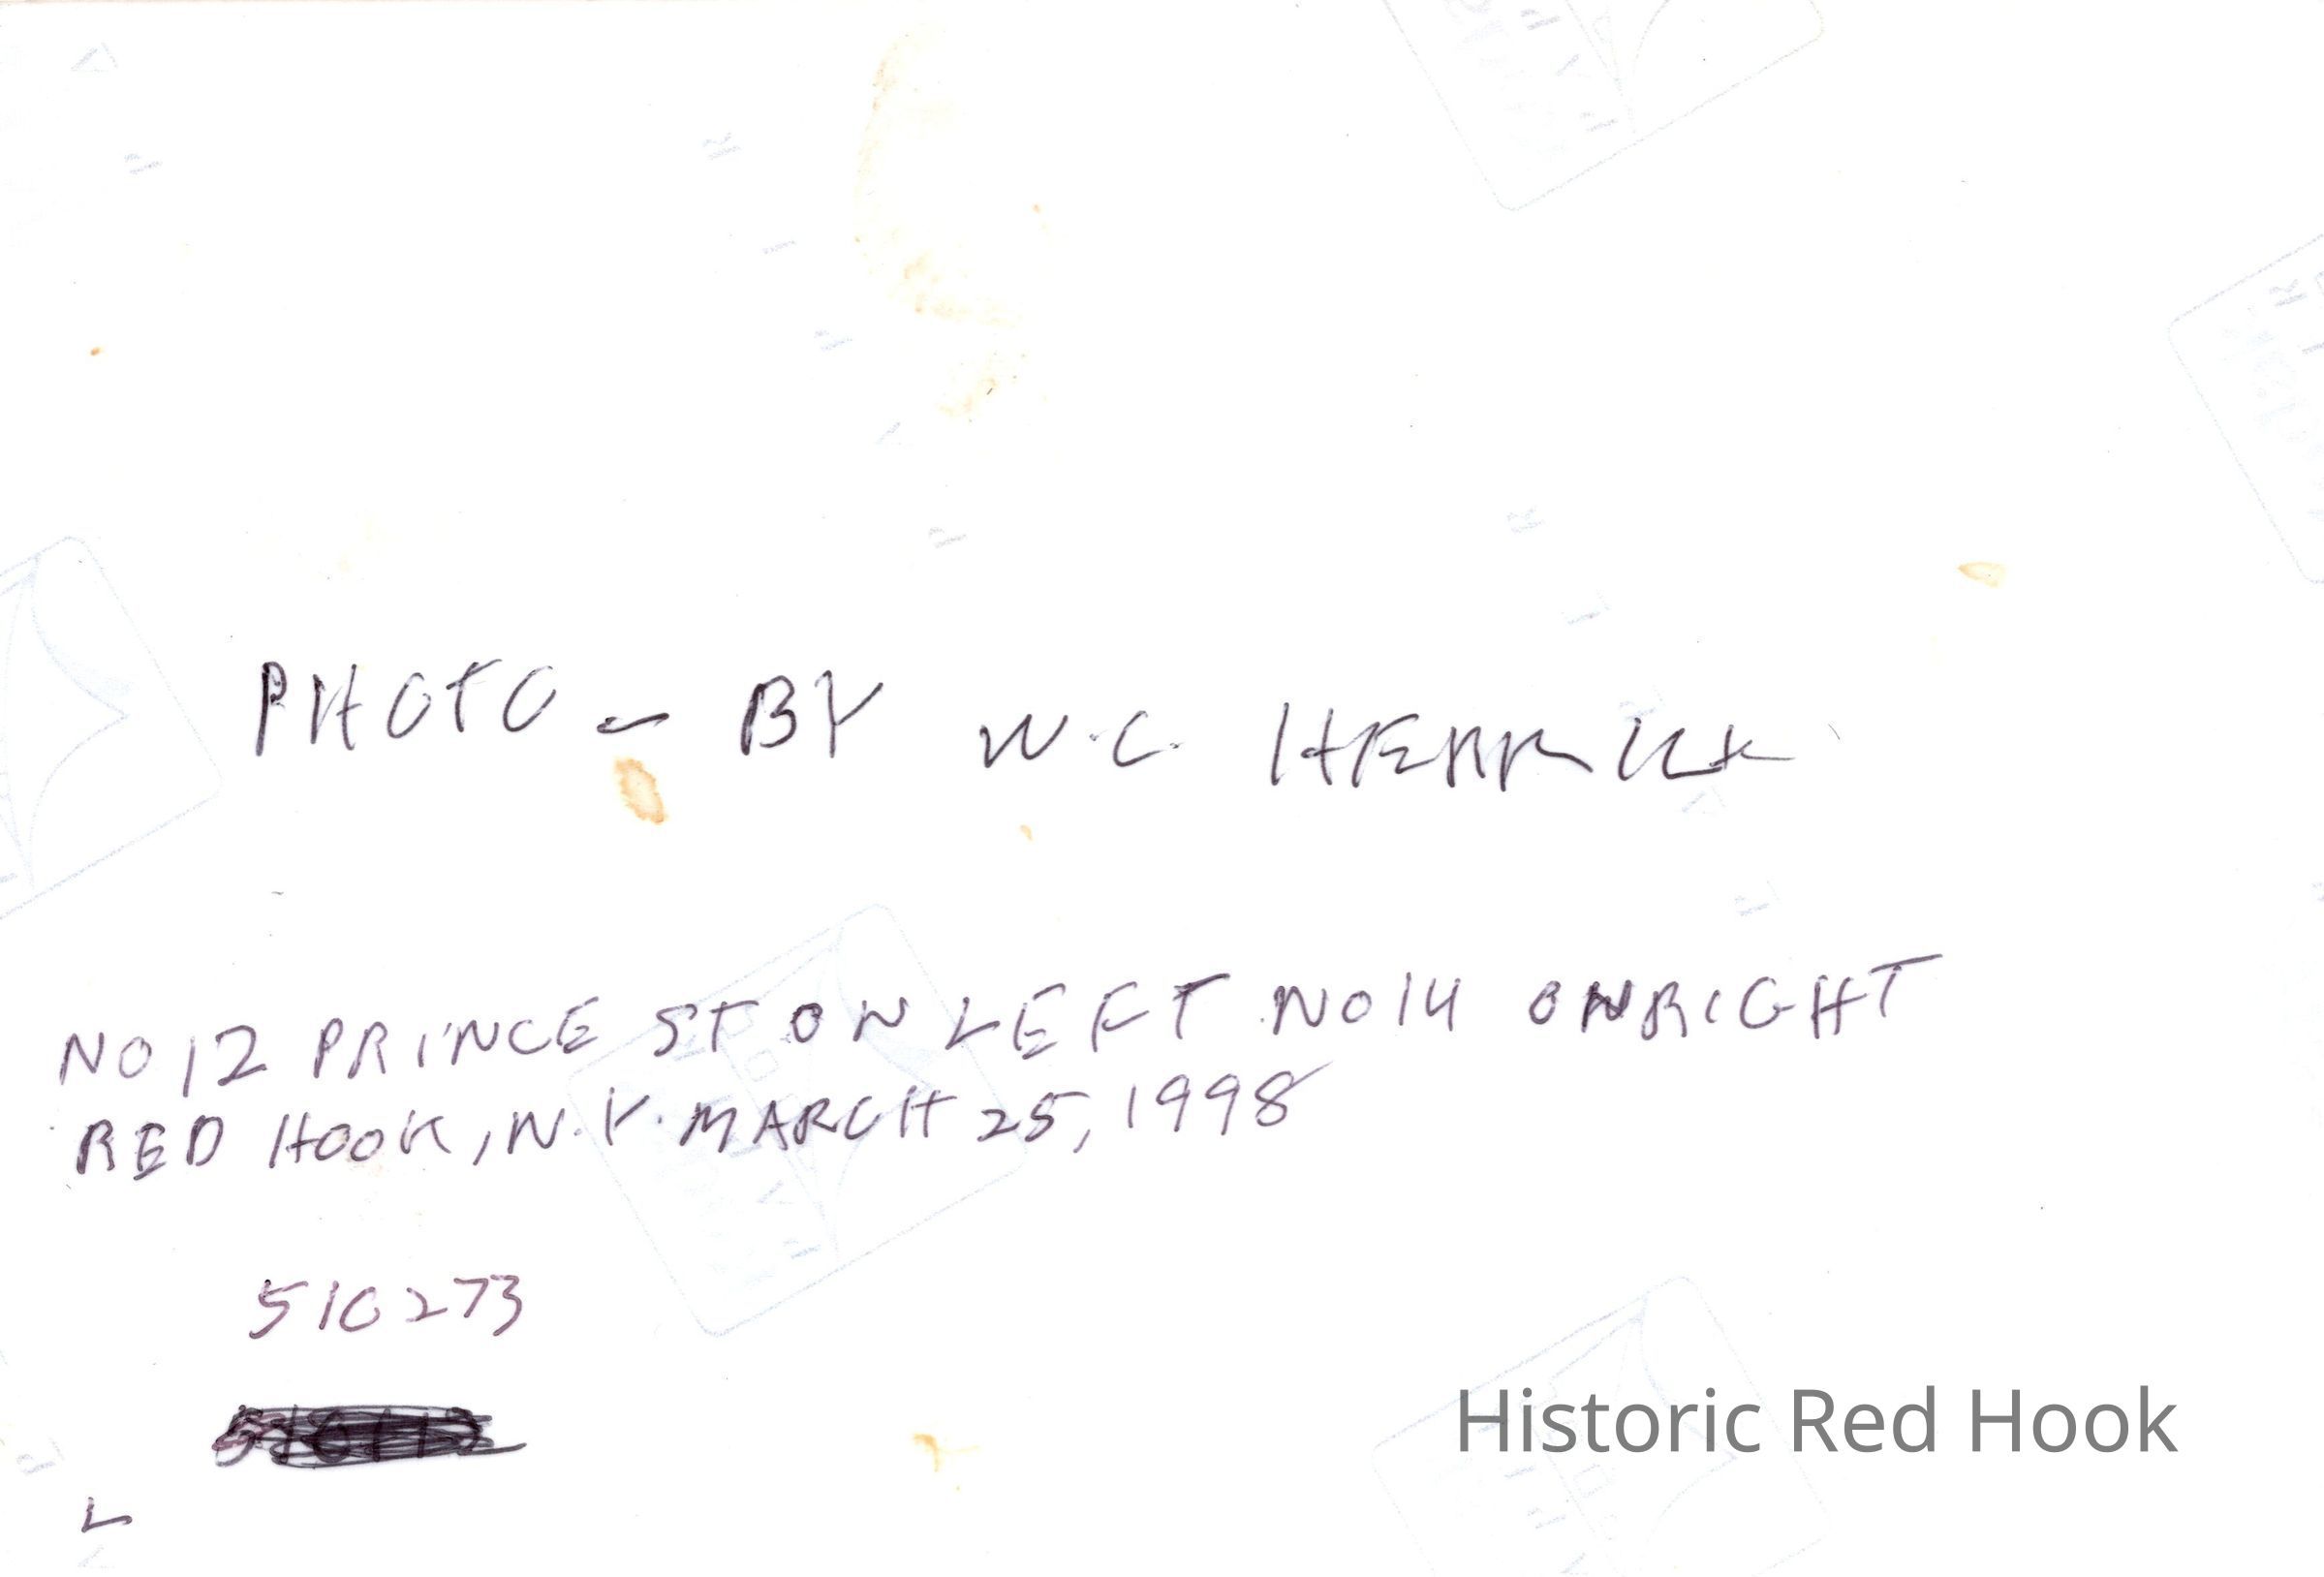 PHOTO - BY W.C. HERRICK
NO 12 PRINCE ST ON LEFT NO 14 ON RIGHT
RED HOOK, N.Y. MARCH 25, 1998
510273
L
Historic Red Hook